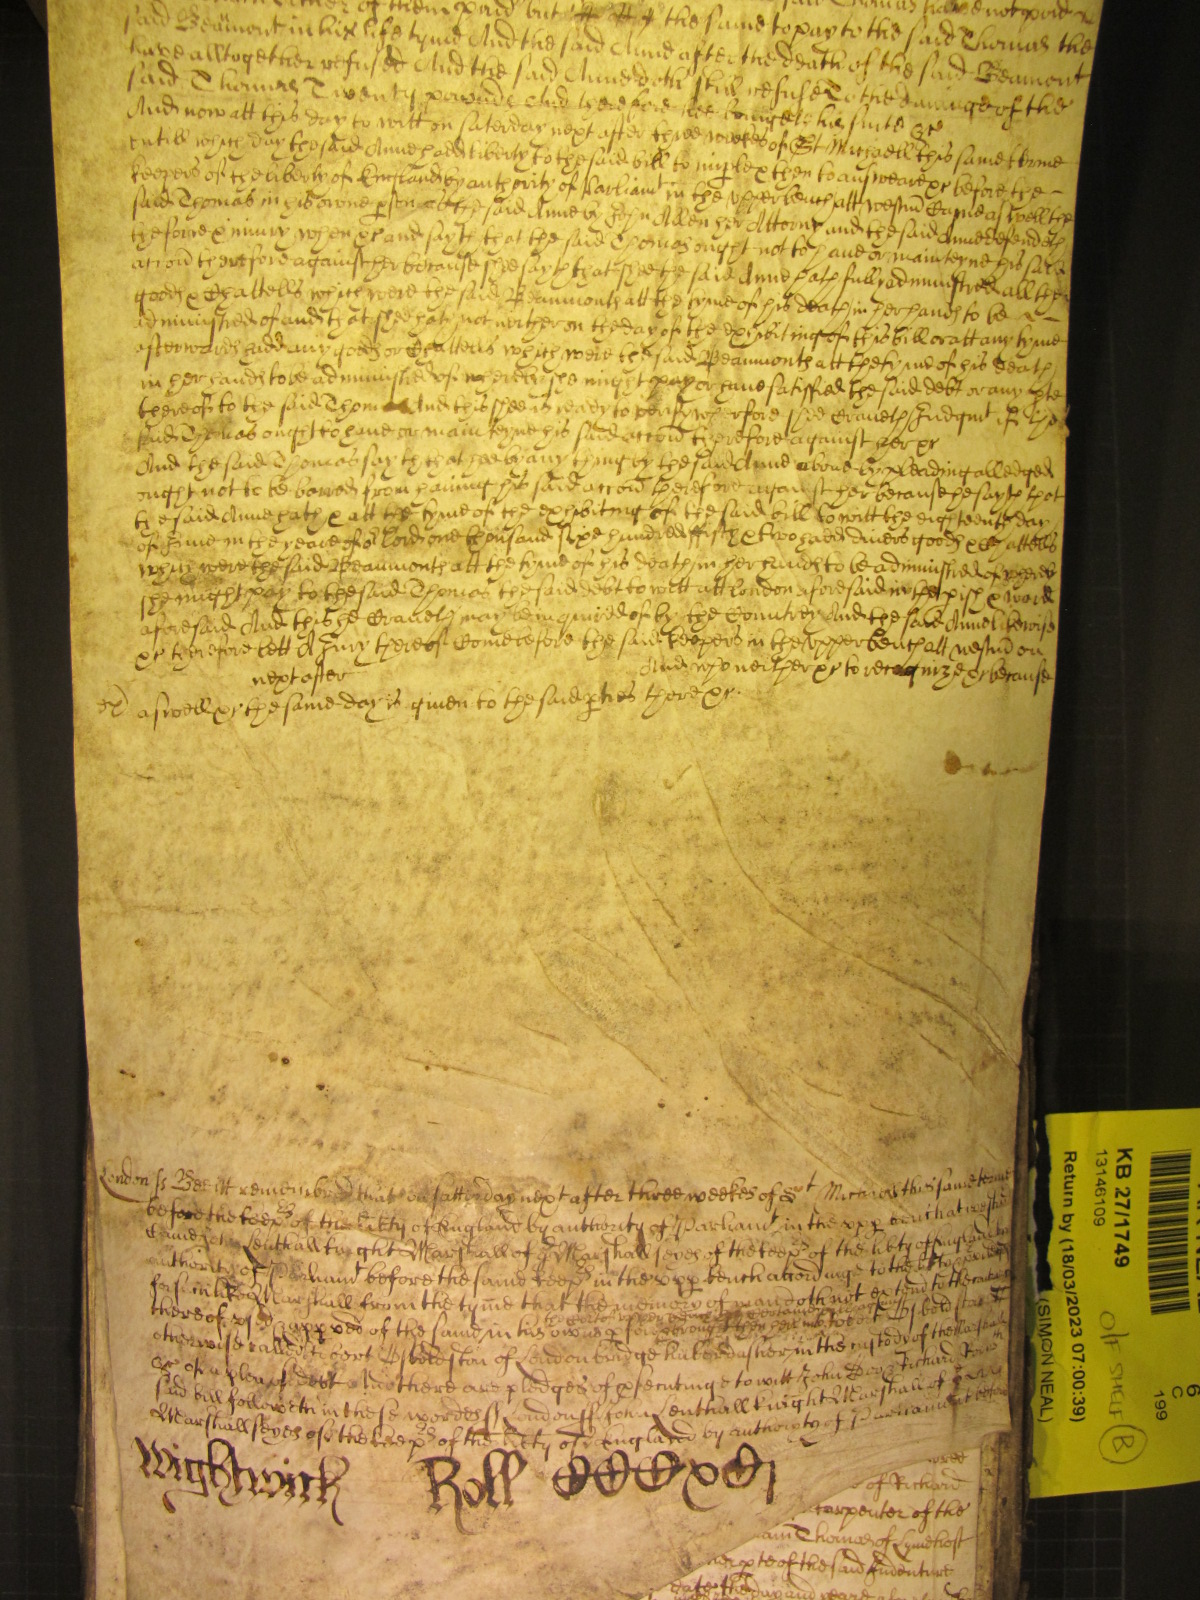 said Beamont in his life tyme And the said Anne after the death of the said Beamont the same to pay to the said Thomas the
have alltogether refused And the said Anne doth still refuse To the damage of the
said Thomas Twenty pounds And therefore hee bringeth his suite &c
And now att this day to witt on Saturday next after three weekes of St Michaell this same terme
untill which day the said Anne hadd liberty to the said bill to imparle & then to answeare &c before the
keepers of the liberty of England by authority of Parliamt in the upper bench att Westmr Came aswell the
said Thomas in his owne pson as the said Anne by John Allen her Attorny and the said Anne defendeth
the force & iniury when &c and sayth that the said Thomas ought not to have or mainteyne his said
accon therefore against her because shee sayth that shee the said Anne hath fully administred all the
goods & Chattells which were the said Beaumonts att the tyme of his death in her hands to be
administred of and that shee hath not neither on the day of the exhibiting of this bill or att any tyme
afterwards hadd any goods or Chattells which were the said Beaumonts att the tyme of his death
in her hands to be administred of whereby she might pay or have satisfied the said debt or any pte
thereof to the said Thomas And this shee is ready to verify wherfore shee Craveth Judgmt if the
said Thomas ought to have or mainteyne his said accon therefore against her &c
And the said Thomas sayth that hee by any thing by the said Anne above by pleading alledged
ought not to be barred from haveing his said accon therefore against her because he sayth that
the said Anne hath & att the tyme of the exhibiting of the said bill to witt the eighteenth day
of June in the yeare of or Lord one thousand sixe hundred fifty & two hadd divers goods & Chattells
which were the said Beaumonts att the tyme of his death in her hands to be administred of whereby
she might pay to the said Thomas the said debt to witt att London aforesaid in the pish & ward
aforesaid And this he Craveth may be inquired of by the Countrey And the said Anne likewise
&c therefore lett A Jury thereof Come before the said keepers in the upper bench att Westmr on
next after And who neither &c to recognize &c because
aswell &c the same day is given to the said pties there &c
London ss Bee itt remembred that on satturday next after three weekes of St Michaell this same terme
before the keeprs of the libty of England by authority of Parliamt in the uppr bench at Westmr
Came John Lenthall knight Marshall of the Marshallseyes of the keeprs of the libty of England by
authority of Parliamt before the same keeprs in the uppr bench according to the
for in like Marshall from the tyme that the memory of man doth not extend to the contrary
thereof used & approved of the same in his owne pson
otherwise called Robert Ibbotson of London bridge haberdasher in the custody of the Marshall
&c of a plea of debt And there are pledges of prsecutinge to witt John Doo & Richard Roo
said bill followeth in these wordes ss London ss John Lenthall knight Marshall of the
Marshallseyes of the keeprs of the libty of England by authority of Parliament before
Wightwick Roll CCCxvj
of Richard
Carpenter of the
Thomas of Lymehost
pte of the said Indenture
KB 27/1749
13146109
Return by (18/03/2023 07:00:39)
(SIMON NEAL)
O/F SHELF B
6
C
199